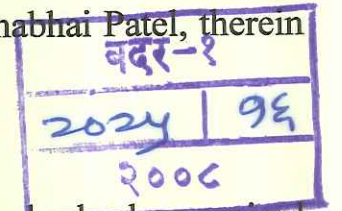 nabhai Patel, therein
बदर-१
२०२५ | १६
२००८